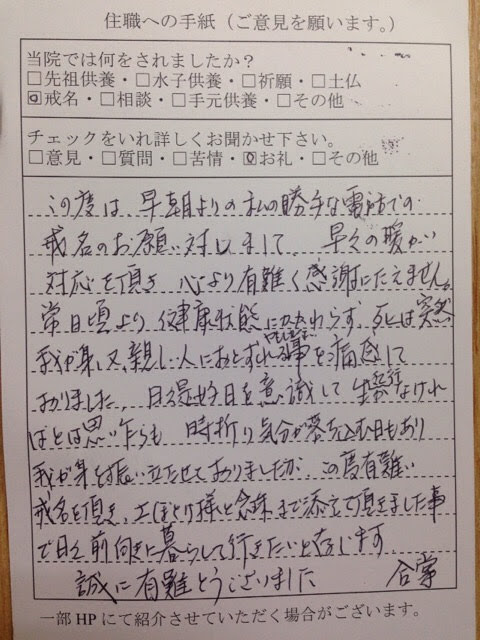 住職への手紙（ご意見を願います。）
当院では何をされましたか？
□先祖供養・□水子供養・□祈願・□土仏
☑戒名・□相談・□手元供養・□その他
チェックをいれ詳しくお聞かせ下さい。
□意見・□質問・□苦情・☑お礼・□その他
この度は、早朝よりの私の勝手な電話での
戒名のお願い対しまして、早々の暖かい
対応を頂き 心より有難く感謝にたえません。
常日頃より健康状態にかかわらず、死とは突然
我が身、又、親しい人におとずれる事を痛感して
おりました。日々是好日を意識して 生 なけれ
ばとは思い乍らも 時折り気分が落ち込む日もあり
我が身を振い立たせておりましたが、この度有難い
戒名を頂き、土ほとけ様と念珠まで添えて頂きました事
で日々前向きに暮らして行きたいと存じます
誠に有難とうございました 合掌
一部HPにて紹介させていただく場合がございます。